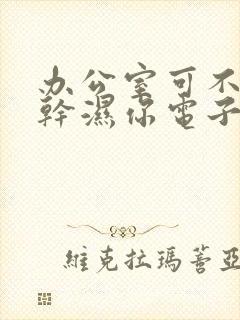 办公室可不
幹濕你電子
維克拉瑪蓍亞